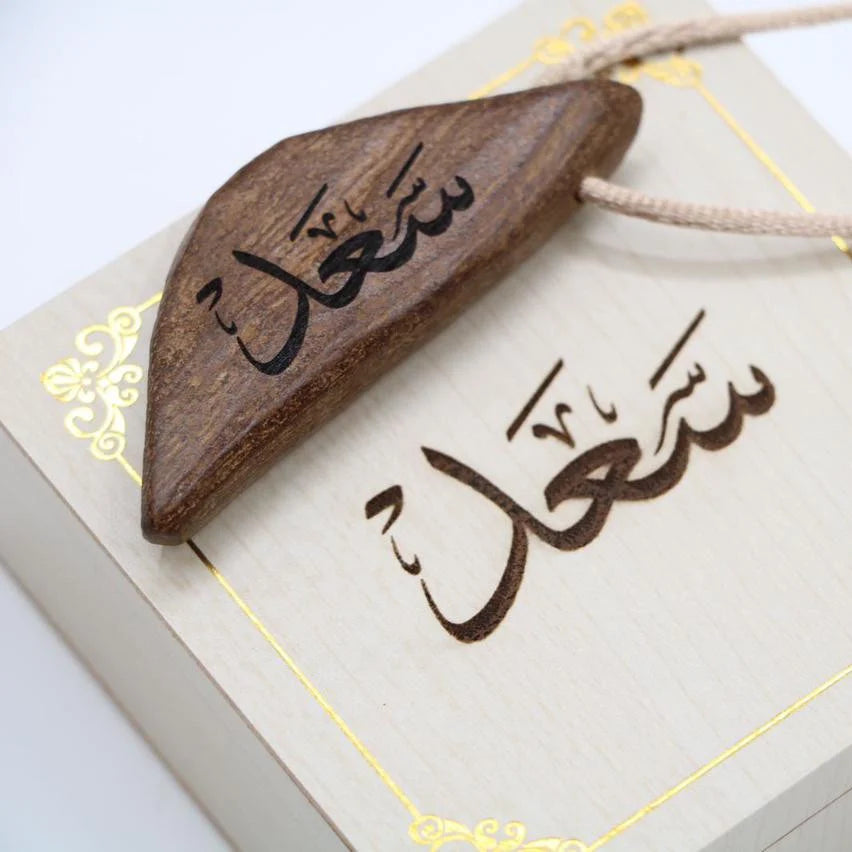 سَعْد
سَعْد